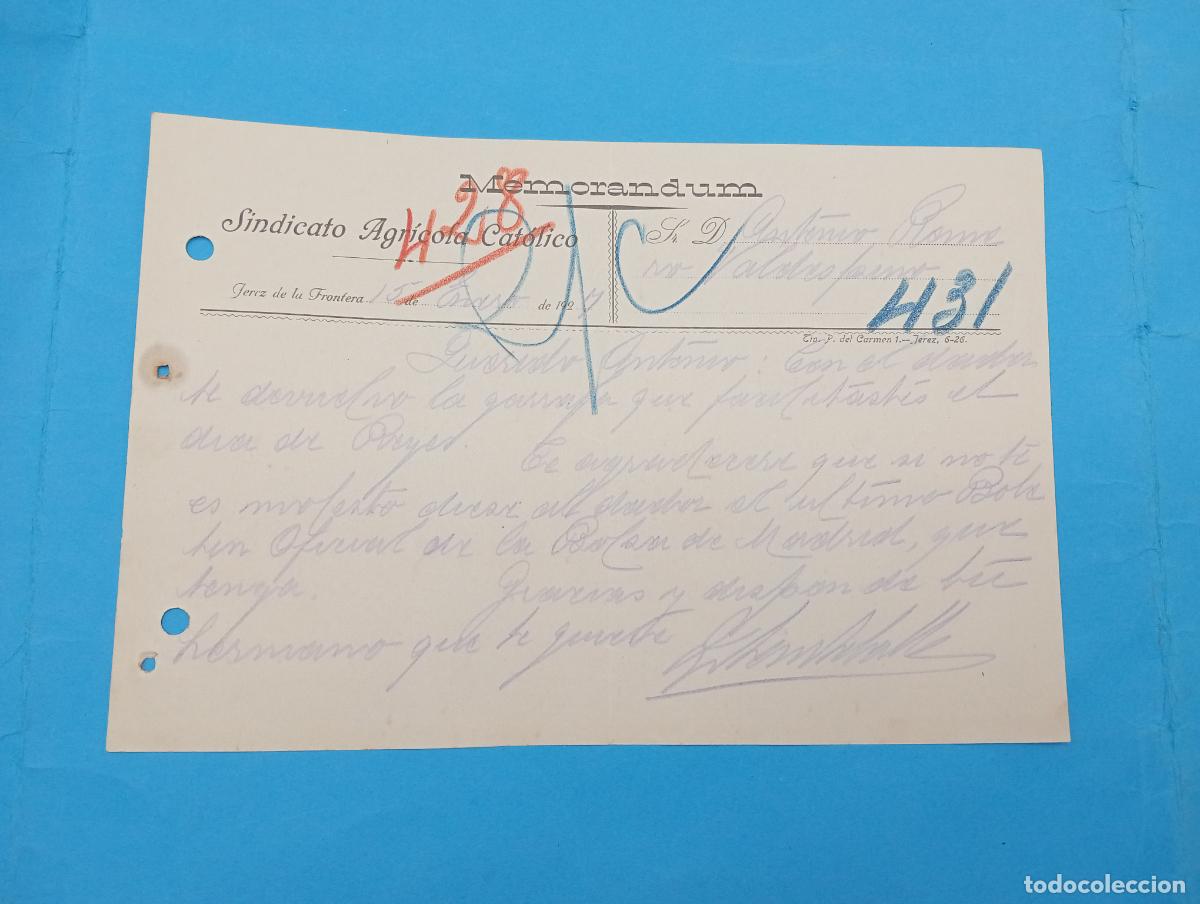 Memorandum
428
Sindicato Agrícola Católico
Sr. D. Antonio Rome
ro Valdespino
431
Jerez de la Frontera 15 de Enero de 1927
Tip. P. del Carmen 1.—Jerez, 6-26.
Querido Antonio: Con el dador
te devuelvo la garrafa que facilitastes el
dia de Reyes.
Te agradecere que si no te
es molesto diese al dador el ultimo Bole
tin Oficial de la Bolsa de Madrid, que
tenga. Gracias y dispon de tu
hermano que te quiere
todocoleccion